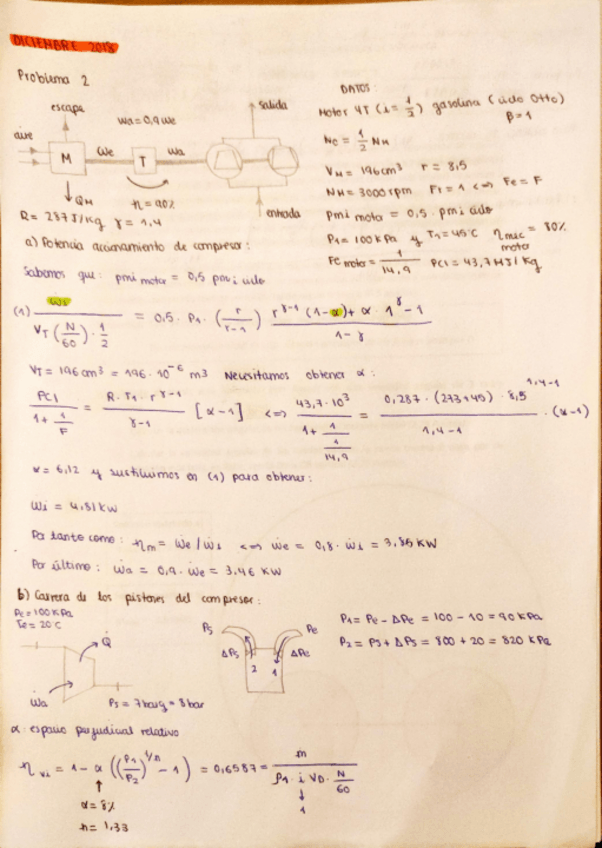 DICIEMBRE 2018
Problema 2
escape
ẇa = 0,9 ẇe
salida
aire
M
ẇe
T
ẇa
QM
η = 90%
entrada
R = 287 J/Kg γ = 1,4
DATOS:
Motor 4T (i = 1/2) gasolina (ciclo Otto)
β = 1
Nc = 1/2 NM
VM = 196 cm³ r = 8,5
NM = 3000 rpm Fr = 1 <=> Fe = F
pmi motor = 0,5 · pmi ciclo
P1 = 100 kPa y T1 = 45°C ηmec motor = 80%
FC motor = 1/14,9 PCI = 43,7 MJ/Kg
a) Potencia accionamiento de compresor:
Sabemos que: pmi motor = 0,5 pmi ciclo
(1) ẇi / (VT (N/60) · 1/2) = 0,5 · P1 · (r/(r-1)) (r^(γ-1) (1-α) + α · 1^γ - 1) / (1-γ)
VT = 196 cm³ = 196 · 10⁻⁶ m3 Necesitamos obtener α:
PCI / (1 + 1/F) = (R · T1 · r^(γ-1)) / (γ-1) [α-1] <=> 43,7 · 10³ / (1 + 1/(1/14,9)) = (0,287 · (273+45) · 8,5^(1,4-1)) / (1,4-1) · (α-1)
α = 6,12 y sustituimos en (1) para obtener:
ẇi = 4,81 kW
Por tanto como: ηm = ẇe / ẇi <=> ẇe = 0,8 · ẇi = 3,85 KW
Por último: ẇa = 0,9 · ẇe = 3,46 KW
b) Carrera de los pistones del compresor:
Pe = 100 KPa
Te = 20 C
Q̇
ẇa
Ps = 7 barg = 8 bar
Ps
Pe
ΔPs
ΔPe
2
1
P1 = Pe - ΔPe = 100 - 10 = 90 KPa
P2 = Ps + ΔPs = 800 + 20 = 820 KPa
α: espacio perjudicial relativo
ηvi = 1 - α ((P1/P2)^(1/n) - 1) = 0,6587 = m / (ρ1 · i VD · N/60)
α = 8%
n = 1,33
1